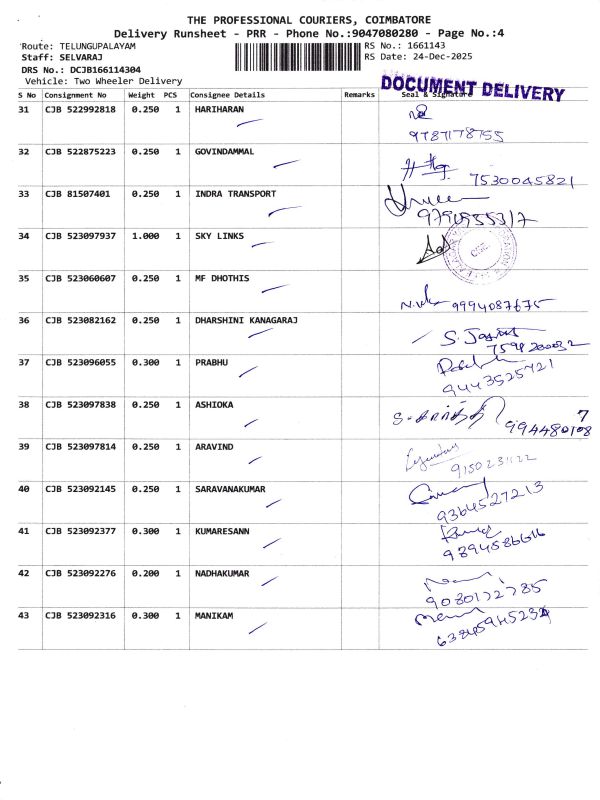 THE PROFESSIONAL COURIERS, COIMBATORE
Delivery Runsheet - PRR - Phone No.:9047080280 - Page No.:4
Route: TELUNGUPALAYAM RS No.: 1661143
Staff: SELVARAJ RS Date: 24-Dec-2025
DRS No.: DCJB166114304
Vehicle: Two Wheeler Delivery
DOCUMENT DELIVERY
S No Consignment No Weight PCS Consignee Details Remarks Seal & Signature
31 CJB 522992818 0.250 1 HARIHARAN
9787178755
32 CJB 522875223 0.250 1 GOVINDAMMAL
7530045821
33 CJB 81507401 0.250 1 INDRA TRANSPORT
34 CJB 523097937 1.000 1 SKY LINKS
35 CJB 523060607 0.250 1 MF DHOTHIS
9994087675
36 CJB 523082162 0.250 1 DHARSHINI KANAGARAJ
37 CJB 523096055 0.300 1 PRABHU
9443525721
38 CJB 523097838 0.250 1 ASHIOKA
39 CJB 523097814 0.250 1 ARAVIND
40 CJB 523092145 0.250 1 SARAVANAKUMAR
9364527213
41 CJB 523092377 0.300 1 KUMARESANN
9894586616
42 CJB 523092276 0.200 1 NADHAKUMAR
9080172785
43 CJB 523092316 0.300 1 MANIKAM